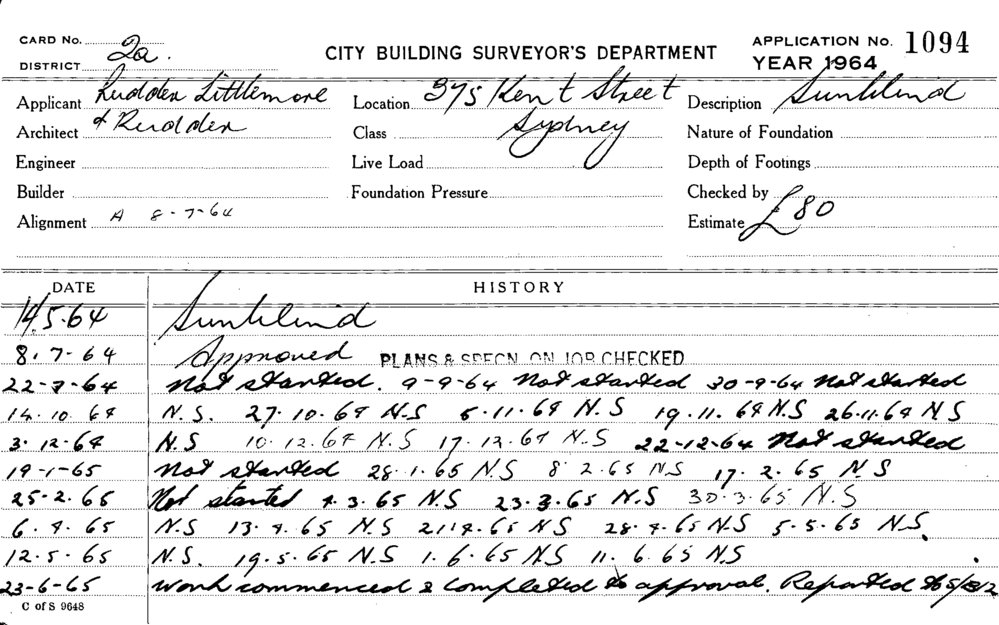 CARD No. 2a.
DISTRICT
CITY BUILDING SURVEYOR'S DEPARTMENT
APPLICATION No. 1094
YEAR 1964
Applicant Rudder Littlemore
Architect & Rudder
Engineer
Builder
Alignment A 8-7-64
Location 375 Kent Street
Class Sydney
Live Load
Foundation Pressure
Description Sunblind
Nature of Foundation
Depth of Footings
Checked by
Estimate £80
DATE HISTORY
14.5.64 Sunblind
8.7-64 Approved PLANS & SPECN. ON JOB CHECKED
22-7-64 Not started. 9-9-64 Not started 30-9-64 Not started
14.10.64 N.S. 27.10.64 N.S 5.11.64 N.S 19.11.64 N.S 26.11.64 N S
3.12.64 N.S 10.12.64 N.S 17.12.64 N.S 22-12-64 Not started
19-1-65 Not started 28.1.65 N.S 8.2.65 N.S 17.2.65 N.S
25-2.65 Not started 4.3.65 N.S 23.3.65 N.S 30.3.65 N.S
6.4.65 N.S 13.4.65 N.S 21.4.65 N S 28.4.65 N.S 5.5.65 N.S.
12.5.65 N.S. 19.5.65 N.S 1.6.65 N.S 11.6.65 N.S
23-6-65 Work commenced & completed to approval. Reported to
C of S 9648